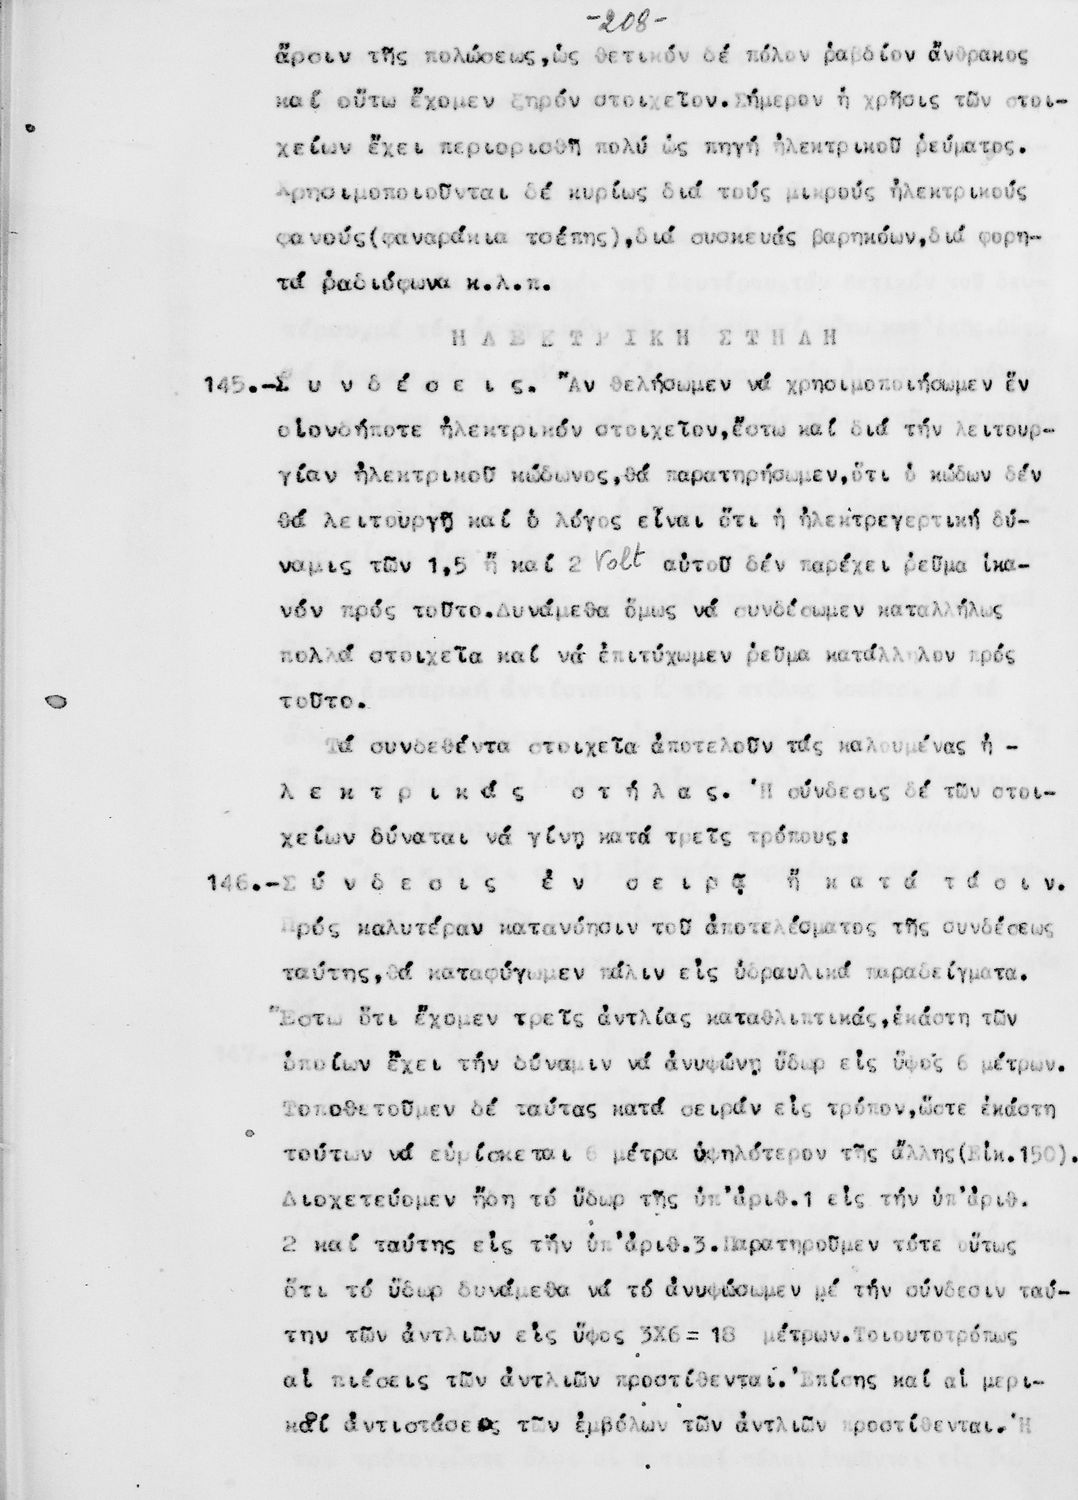 -208-
ἄρσιν τῆς πολώσεως,ὡς θετικόν δέ πόλον ραβδίον ἄνθρακος
καί οὕτω ἔχομεν ξηρόν στοιχεῖον.Σήμερον ἡ χρῆσις τῶν στοι-
χείων ἔχει περιορισθῆ πολύ ὡς πηγή ἠλεκτρικοῦ ρεύματος.
Χρησιμοποιοῦνται δέ κυρίως διά τούς μικρούς ἠλεκτρικούς
φανούς(φαναράκια τσέπης),διά συσκευάς βαρηκόων,διά φορη-
τά ραδιόφωνα κ.λ.π.
ΗΛΕΚΤΡΙΚΗ ΣΤΗΛΗ
145.-Σ υ ν δ έ σ ε ι ς. Ἄν θελήσωμεν νά χρησιμοποιήσωμεν ἕν
οἱονδήποτε ἠλεκτρικόν στοιχεῖον,ἔστω καί διά τήν λειτουρ-
γίαν ἠλεκτρικοῦ κώδωνος,θά παρατηρήσωμεν,ὅτι ὁ κώδων δέν
θά λειτουργῇ καί ὁ λόγος εἶναι ὅτι ἡ ἠλεκτρεγερτική δύ-
ναμις τῶν 1,5 ἤ καί 2 Volt αὐτοῦ δέν παρέχει ρεῦμα ἱκα-
νόν πρός τοῦτο.Δυνάμεθα ὅμως νά συνδέσωμεν καταλλήλως
πολλά στοιχεῖα καί νά ἐπιτύχωμεν ρεῦμα κατάλληλον πρός
τοῦτο.
Τά συνδεθέντα στοιχεῖα ἀποτελοῦν τάς καλουμένας ἠ -
λ ε κ τ ρ ι κ ά ς σ τ ή λ α ς. Ἡ σύνδεσις δέ τῶν στοι-
χείων δύναται νά γίνῃ κατά τρεῖς τρόπους:
146.-Σ ύ ν δ ε σ ι ς ἐ ν σ ε ι ρ ᾷ ἤ κ α τ ά τ ά σ ι ν.
Πρός καλυτέραν κατανόησιν τοῦ ἀποτελέσματος τῆς συνδέσεως
ταύτης,θά καταφύγωμεν πάλιν εἰς ὑδραυλικά παραδείγματα.
Ἔστω ὅτι ἔχομεν τρεῖς ἀντλίας καταθλιπτικάς,ἑκάστη τῶν
ὁποίων ἔχει τήν δύναμιν νά ἀνυψώνῃ ὕδωρ εἰς ὕψος 6 μέτρων.
Τοποθετοῦμεν δέ ταύτας κατά σειράν εἰς τρόπον,ὥστε ἑκάστη
τούτων νά εὑρίσκεται 6 μέτρα ὑψηλότερον τῆς ἄλλης(Εἰκ.150).
Διοχετεύομεν ἤδη τό ὕδωρ τῆς ὑπ'ἀριθ.1 εἰς τήν ὑπ'ἀριθ.
2 καί ταύτης εἰς τήν ὑπ'ἀριθ.3.Παρατηροῦμεν τότε οὕτως
ὅτι τό ὕδωρ δυνάμεθα νά τό ἀνυψώσωμεν μέ τήν σύνδεσιν ταύ-
την τῶν ἀντλιῶν εἰς ὕψος 3Χ6=18 μέτρων.Τοιουτοτρόπως
αἱ πιέσεις τῶν ἀντλιῶν προστίθενται.Ἐπίσης καί αἱ μερι-
καί ἀντιστάσεις τῶν ἐμβόλων τῶν ἀντλιῶν προστίθενται.Ἡ